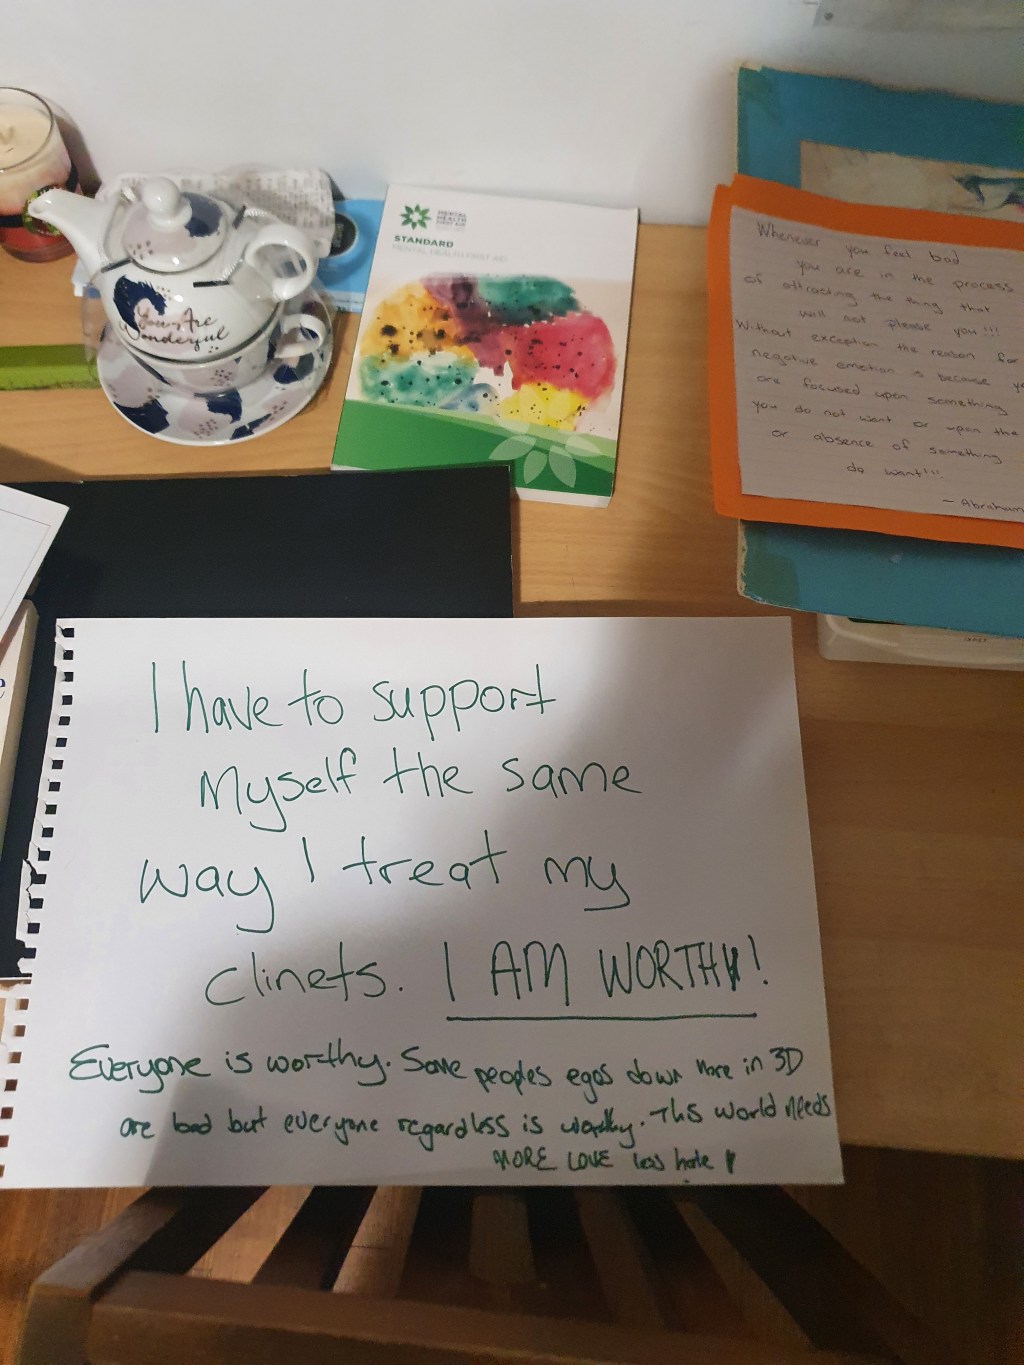 You Are
Wonderful
MENTAL
HEALTH
FIRST AID
STANDARD
MENTAL HEALTH FIRST AID
Whenever you feel bad
you are in the process
of attracting the thing that
will not please you!!!
Without exception the reason for
negative emotion is because
are focused upon something
you do not want or upon the
or absence of something
do want!!!
- Abraham
I have to support
Myself the same
way I treat my
clinets. I AM WORTHY!
Everyone is worthy. Some peoples egos down here in 3D
are bad but everyone regardless is worthy. This world needs
MORE LOVE less hate!